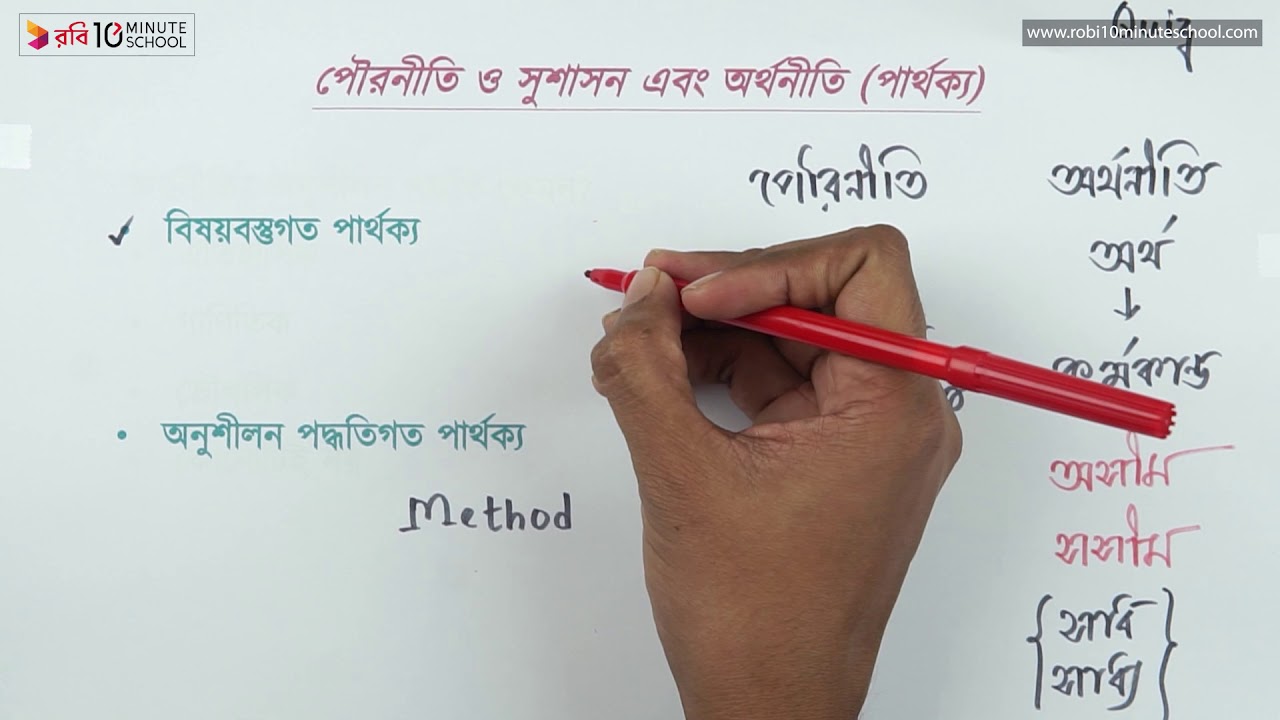 রবি 10 MINUTE SCHOOL
Quiz
www.robi10minuteschool.com
পৌরনীতি ও সুশাসন এবং অর্থনীতি (পার্থক্য)
পৌরনীতি
অর্থনীতি
বিষয়বস্তুগত পার্থক্য
অর্থ
↓
কর্মকান্ড
অনুশীলন পদ্ধতিগত পার্থক্য
অসীম
Method
সসীম
সাধ
সাধ্য